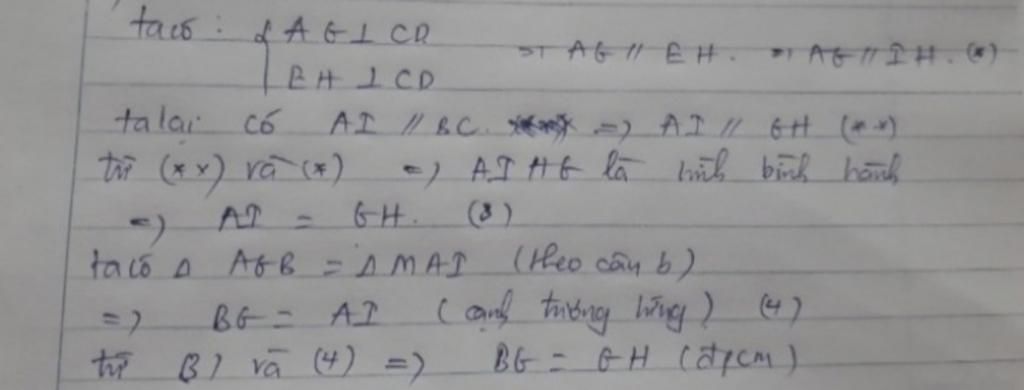 ta có : { AG ⊥ CD
EH ⊥ CD => AG // EH. => AG // IH. (*)
ta lại có AI // BC. => AI // GH (**)
từ (**) và (*) => AIHG là hình bình hành
=> AI = GH. (3)
ta có Δ AGB = Δ MAI (theo câu b)
=> BG = AI (cạnh tương ứng) (4)
từ (3) và (4) => BG = GH (đpcm)